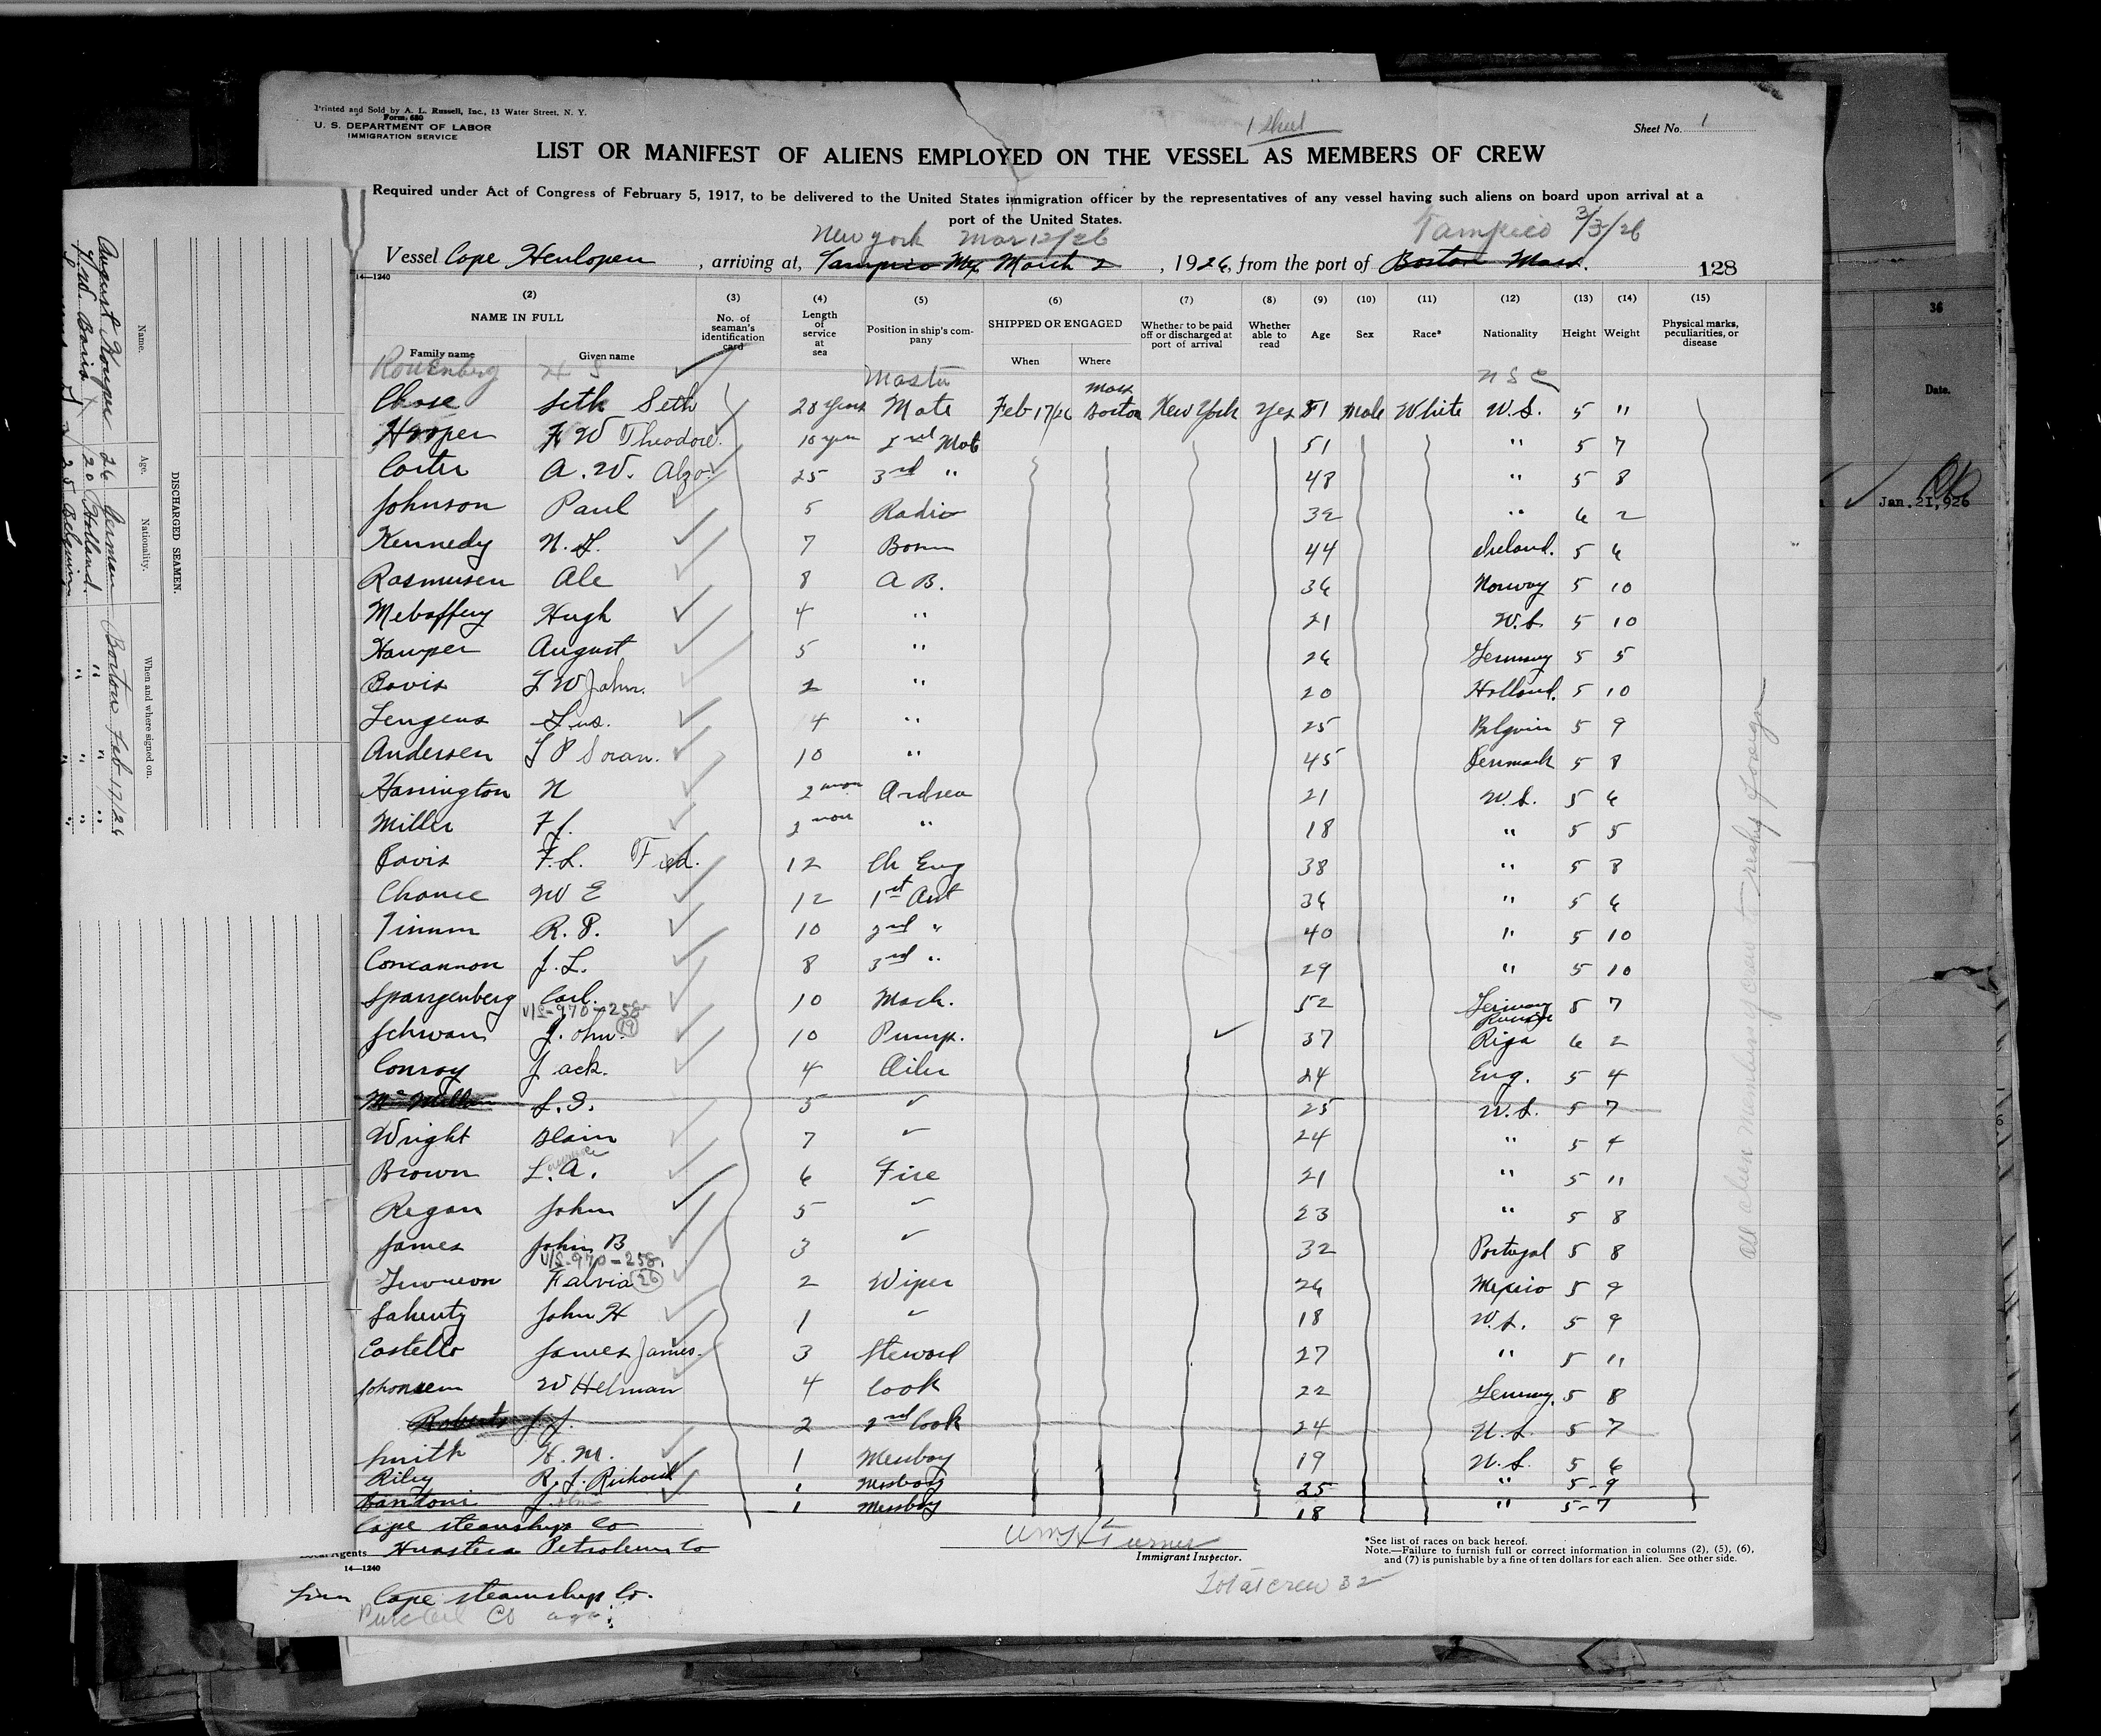 Printed and Sold by A. L. Russell, Inc., 13 Water Street, N. Y.
Form 680
U. S. DEPARTMENT OF LABOR
IMMIGRATION SERVICE
1 Sheet
Sheet No. 1
LIST OR MANIFEST OF ALIENS EMPLOYED ON THE VESSEL AS MEMBERS OF CREW
Required under Act of Congress of February 5, 1917, to be delivered to the United States immigration officer by the representatives of any vessel having such aliens on board upon arrival at a
port of the United States.
New York Mar 12/26 Tampico 3/3/26
Vessel Cape Henlopen, arriving at, Tampico Mex March 2, 1926, from the port of Boston Mass. 128
14—1240
(2) (3) (4) (5) (6) (7) (8) (9) (10) (11) (12) (13) (14) (15)
NAME IN FULL No. of seaman's identification card Length of service at sea Position in ship's company SHIPPED OR ENGAGED Whether to be paid off or discharged at port of arrival Whether able to read Age Sex Race* Nationality Height Weight Physical marks, peculiarities, or disease
Family name Given name When Where
H S Master U S C
Chase Seth Seth 28 years Mate Feb 17/26 Boston Mass New York Yes 51 Male White U.S. 5 "
Hooper Theodore. 10 years 2nd Mate 51 " 5 7
Carter A. W. 25 3rd " 48 " 5 8
Johnson Paul 5 Radio 32 " 6 2
Kennedy N. 7 Bosun 44 Ireland. 5 6
Rasmusen Ole 8 A B. 36 Norway 5 10
Hugh 4 " 21 U.S 5 10
August 5 " 26 Germany 5 5
John. 2 " 20 Holland. 5 10
4 " 25 Belgium 5 9
Andersen 10 " 45 Denmark 5 8
Harrington N 2 mon 21 U.S. 5 6
Miller F J. 2 mon " 18 " 5 5
Davis F. L. Fred. 12 Ch Eng 38 " 5 8
Chance W E 12 1st Asst 36 " 5 6
Timmm R. P. 10 2nd " 40 " 5 10
Concannon J. L. 8 3rd " 29 " 5 10
Spangenberg Carl. 10 Mach. 52 Germany 5 7
V/S-970-258 (19)
Schwan John. 10 Pump. 37 Riga 6 2
Conroy Jack. 4 Oiler 24 Eng. 5 4
McMillan 5 " 25 U.S. 5 7
Wright Blain 7 " 24 " 5 4
Brown L. A. Lawrence 6 Fire 21 " 5 11
Regan John 5 " 23 " 5 8
James John B 3 " 32 Portugal 5 8
V/S-970-258. (26)
Falvia 2 Wiper 26 Mexico 5 9
John H 1 " 18 U.S. 5 9
Costello James James. 3 Steward 27 " 5 11
W Helman 4 Cook 22 Germany. 5 8
Roberts J. J. 2 2nd Cook 24 U.S. 5 7
Smith H. M. 1 Messboy 19 U.S. 5 6
Riley R. J. Richard 1 Messboy 25 " 5-9
Santoni John 1 Messboy 18 " 5-7
Cape Steamship Co
Local Agents Huasteca Petroleum Co
14—1240
Turner
Immigrant Inspector.
*See list of races on back hereof.
Note.—Failure to furnish full or correct information in columns (2), (5), (6),
and (7) is punishable by a fine of ten dollars for each alien. See other side.
Total crew 32
Cape Steamship Co.
All alien members of crew to reship foreign
DISCHARGED SEAMEN.
Name. Age. Nationality. When and where signed on.
August 26 German Boston Feb 17/26
20 Holland. " "
25 Belgium " "
36
Date.
Jan. 21, 926